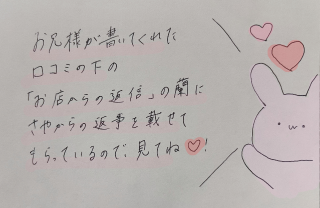 お兄様が書いてくれた
口コミの下の
「お店からの返信」の蘭に
さやからの返事を載せて
もらっているので、見てね♡!